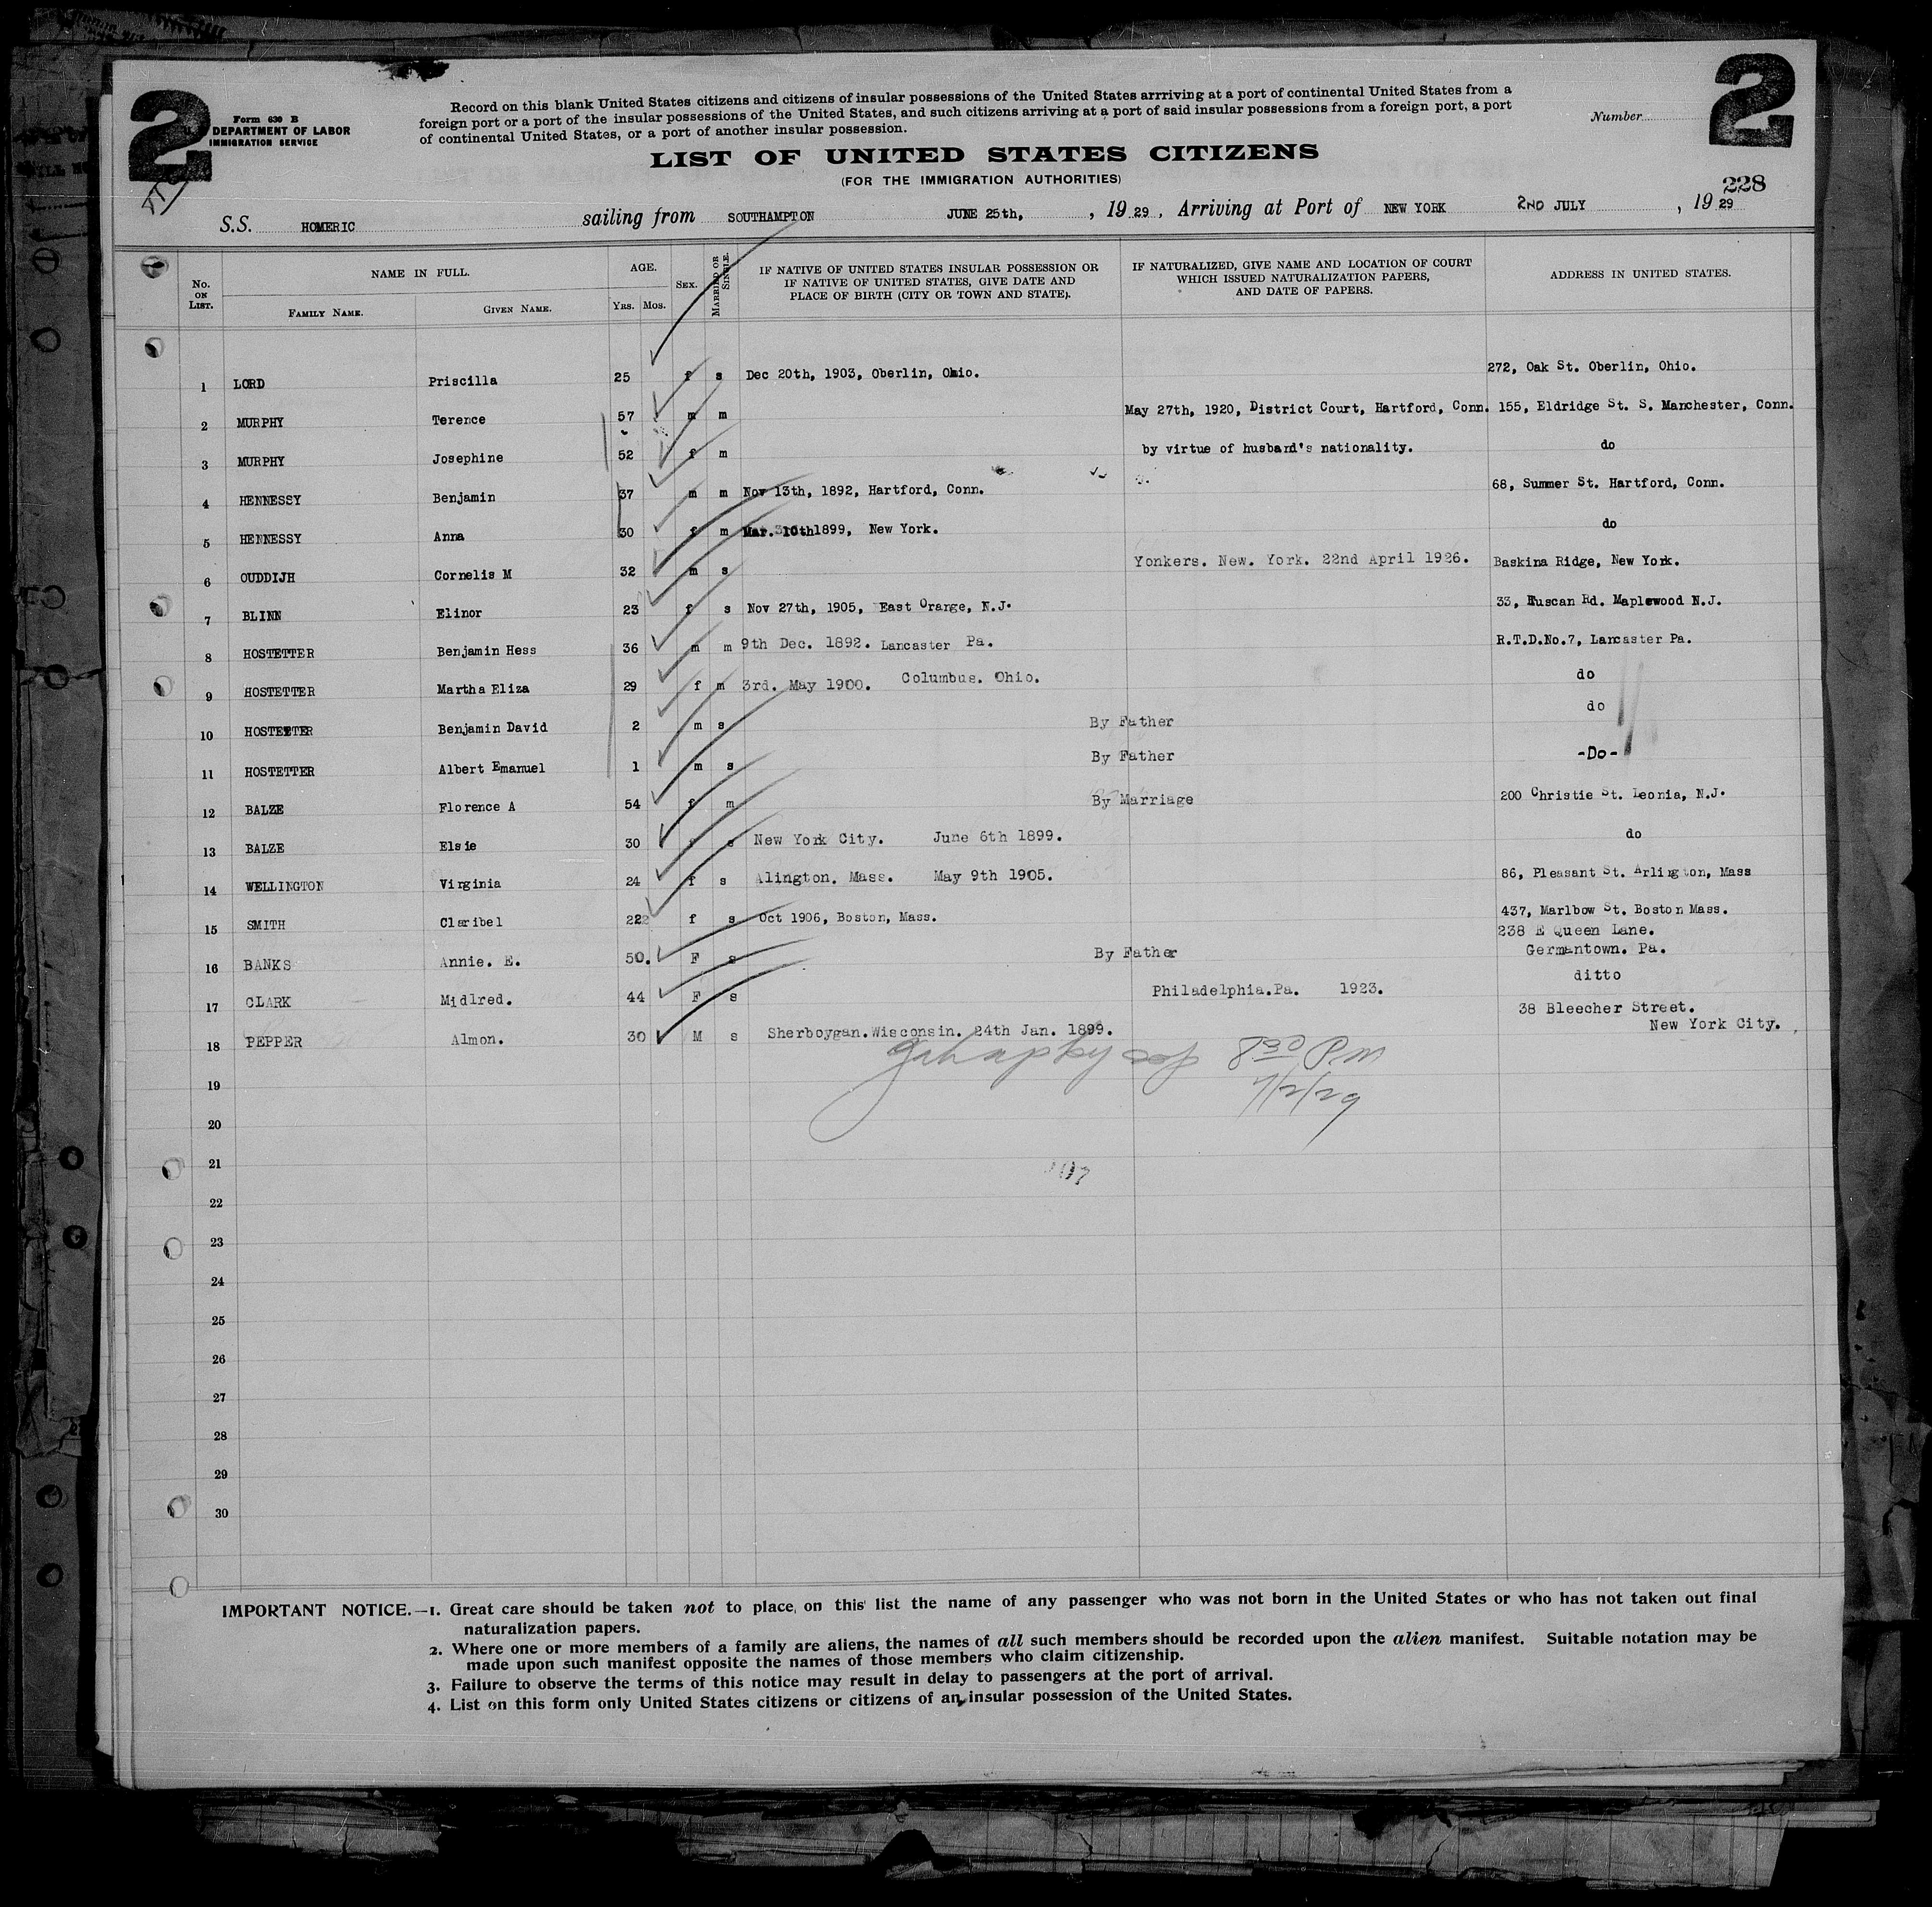 2
2
Form 630 B
U.S. DEPARTMENT OF LABOR
IMMIGRATION SERVICE
Record on this blank United States citizens and citizens of insular possessions of the United States arrriving at a port of continental United States from a
foreign port or a port of the insular possessions of the United States, and such citizens arriving at a port of said insular possessions from a foreign port, a port
of continental United States, or a port of another insular possession.
Number
LIST OF UNITED STATES CITIZENS
(FOR THE IMMIGRATION AUTHORITIES)
228
S.S. HOMERIC sailing from SOUTHAMPTON JUNE 25th, , 19 29 , Arriving at Port of NEW YORK 2ND JULY , 19 29
No. ON LIST. NAME IN FULL. FAMILY NAME. GIVEN NAME. AGE. YRS. MOS. SEX. MARRIED OR SINGLE.
IF NATIVE OF UNITED STATES INSULAR POSSESSION OR
IF NATIVE OF UNITED STATES, GIVE DATE AND
PLACE OF BIRTH (CITY OR TOWN AND STATE).
IF NATURALIZED, GIVE NAME AND LOCATION OF COURT
WHICH ISSUED NATURALIZATION PAPERS,
AND DATE OF PAPERS.
ADDRESS IN UNITED STATES.
1 LORD Priscilla 25 f s Dec 20th, 1903, Oberlin, Ohio. 272, Oak St. Oberlin, Ohio.
2 MURPHY Terence 57 m m May 27th, 1920, District Court, Hartford, Conn. 155, Eldridge St. S. Manchester, Conn.
3 MURPHY Josephine 52 f m by virtue of husband's nationality. do
4 HENNESSY Benjamin 37 m m Nov 13th, 1892, Hartford, Conn. 68, Summer St. Hartford, Conn.
5 HENNESSY Anna 30 f m Mar. 10th 1899, New York. do
6 OUDDIJH Cornelis M 32 m s Yonkers. New. York. 22nd April 1926. Baskina Ridge, New York.
7 BLINN Elinor 23 f s Nov 27th, 1905, East Orange, N.J. 33, Euscan Rd. Maplewood N.J.
8 HOSTETTER Benjamin Hess 36 m m 9th Dec. 1892. Lancaster Pa. R.T.D.No.7, Lancaster Pa.
9 HOSTETTER Martha Eliza 29 f m 3rd. May 1900. Columbus. Ohio. do
10 HOSTETTER Benjamin David 2 m s By Father do
11 HOSTETTER Albert Emanuel 1 m s By Father -Do-
12 BALZE Florence A 54 f m By Marriage 200 Christie St. Leonia, N.J.
13 BALZE Elsie 30 s New York City. June 6th 1899. do
14 WELLINGTON Virginia 24 f s Alington. Mass. May 9th 1905. 86, Pleasant St. Arlington, Mass
15 SMITH Claribel 22 f s Oct 1906, Boston, Mass. 437, Marlbow St. Boston Mass.
16 BANKS Annie. E. 50. F s By Father 238 E Queen Lane.
Germantown. Pa.
17 CLARK Midlred. 44 F s Philadelphia.Pa. 1923. ditto
18 PEPPER Almon. 30 M s Sherboygan.Wisconsin. 24th Jan. 1899. 38 Bleecher Street.
New York City.
8 30 P.M
7/2/29
19
20
21
22
23
24
25
26
27
28
29
30
IMPORTANT NOTICE.—1. Great care should be taken not to place on this list the name of any passenger who was not born in the United States or who has not taken out final
naturalization papers.
2. Where one or more members of a family are aliens, the names of all such members should be recorded upon the alien manifest. Suitable notation may be
made upon such manifest opposite the names of those members who claim citizenship.
3. Failure to observe the terms of this notice may result in delay to passengers at the port of arrival.
4. List on this form only United States citizens or citizens of an insular possession of the United States.